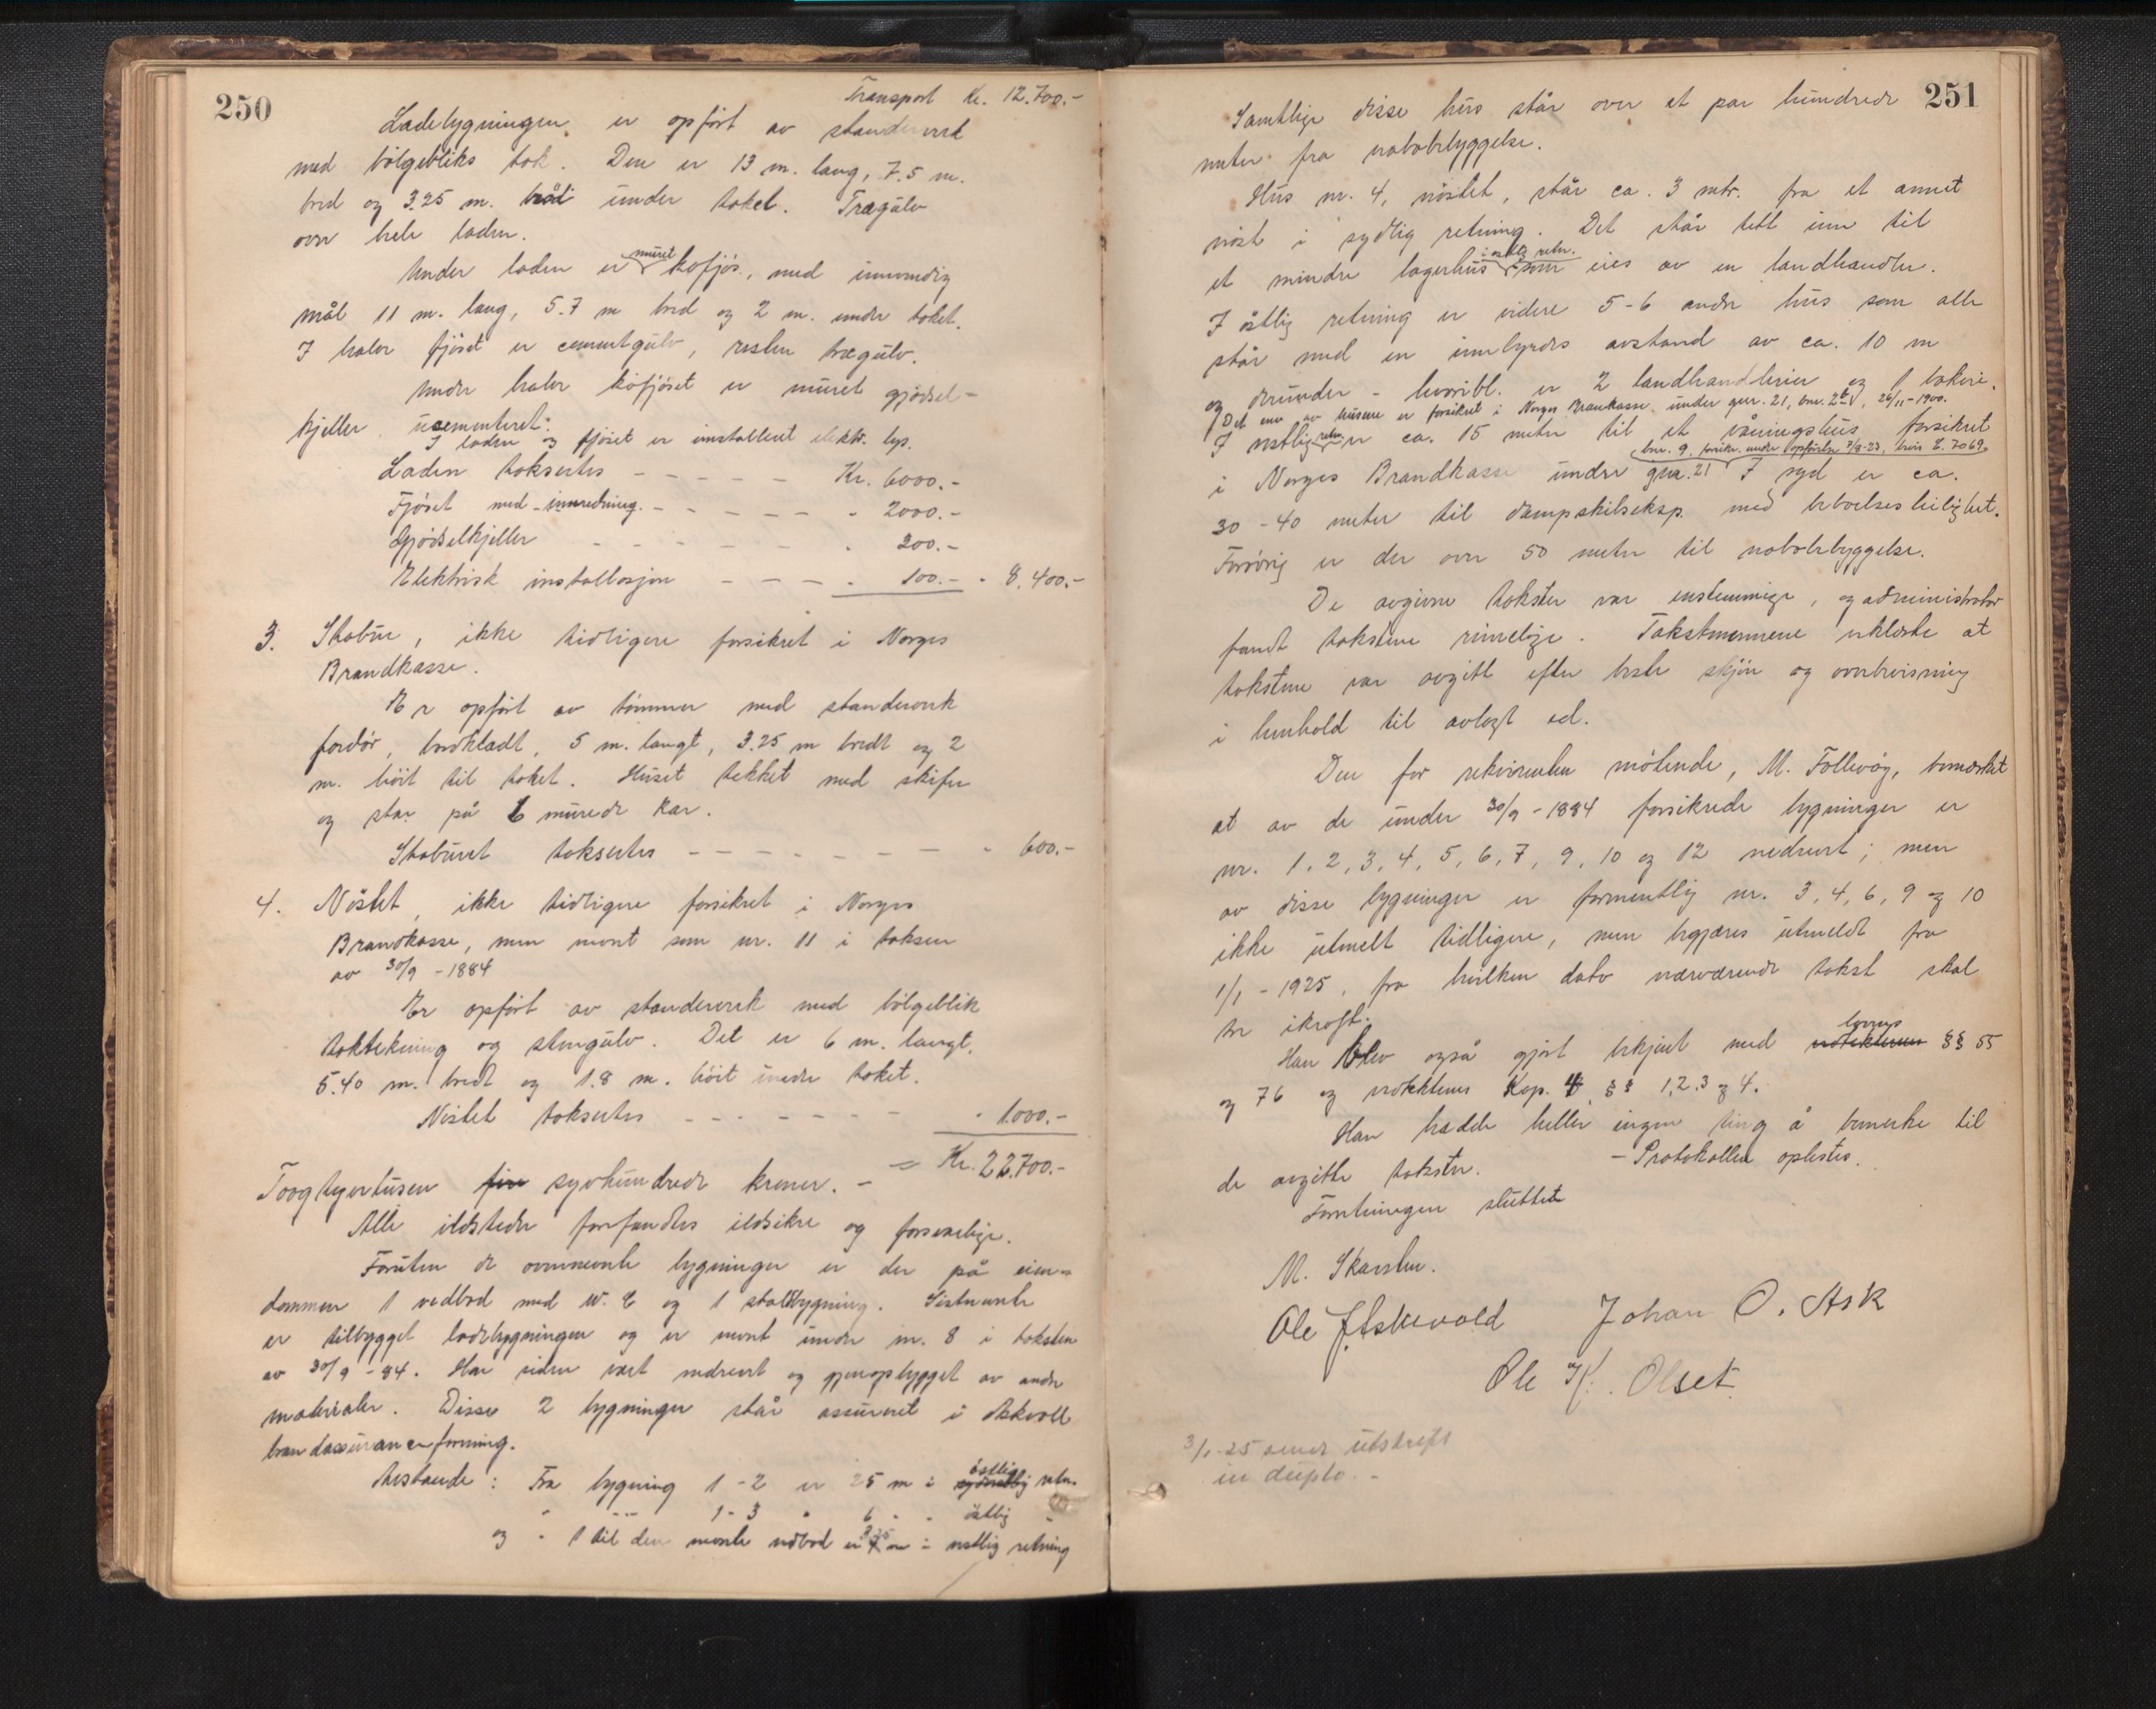 250
Transport Kr. 12.700.-
Ladebygningen er opført av standerverk
med bölgebliks tak. Den er 13 m. lang, 7.5 m.
bred og 3.25 m. under taket. Trægulv
over hele laden.
Under laden er muret kofjös, med innvendig
mål 11 m. lang, 5.7 m bred og 2 m. under taket.
I halve fjöset er cementgulv, resten trægulv.
Under halve kofjöset er muret gjödsel-
kjeller, ucementeret.
I laden og fjöset er installeret elektr. lys.
Laden takseres - - - - - Kr. 6000.-
Fjöset med innredning - - - - - - 2000.-
Gjödselkjeller - - - - - - 300.-
Elektrisk installasjon - - - - 100.- - 8.400.-
3. Stabur, ikke tidligere forsikret i Norges
Brandkasse.
Er opfört av tömmer med standerverk
fordör, bordkledt, 5 m. langt, 3.25 m bredt og 2
m. höit til taket. Huset tekket med skifer
og står på 6 murede kar.
Staburet takseres - - - - - - - - - 600.-
4. Nöstet, ikke tidligere forsikret i Norges
Brandkasse, men nevnt som nr. 11 i taksten
av 30/9 - 1884
Er opfört av standerverk med bölgeblik
taktekning og stengulv. Det er 6 m. langt,
5.40 m. bredt og 1.8 m. höit under taket.
Nöstet takseres - - - - - - - - 1.000.-
= Kr. 22.700.-
Toogtyvetusen fire syvhundrede kroner. -
Alle ildsteder forfandtes ildsikre og forsvarlige.
Foruten de ovennevnte bygninger er der på eien-
dommen 1 vedbod med W.C og 1 staldbygning. Sistnevnte
er tilbygget ladebygningen og er nevnt under nr. 8 i taksten
av 30/9 - 84. Har siden vært nedrevet og gjenopbygget av andre
materialer. Disse 2 bygninger står assureret i Askvoll
brandassuranceforening.
Avstande: Fra bygning 1 - 2 er 25 m i östlig retn.
" -- 1 - 3 " 6 " - östlig "
og " 1 til den nevnte vedbod er 3.25 m i vestlig retning
251
Samtlige disse hus står over et par hundrede
meter fra nabobebyggelse.
Hus nr. 4, nöstet, står ca. 3 mtr. fra et annet
nöst i sydlig retning. Det står tett inn til
et mindre lagerhus i östlig retn. som eies av en landhandler.
I östlig retning er videre 5-6 andre hus som alle
står med en innbyrdes avstand av ca. 10 m
og derunder - hvoriblt. er 2 landhandlerier og 1 bakeri.
Det ene av husene er forsikret i Norges Brandkasse under gnr. 21, bnr. 2, 26/11-1900.
I vestlig retn. er ca. 15 meter til et våningshus forsikret
i Norges Brandkasse under gnr. 21 bnr. 9. I syd er ca.
30 - 40 meter til dampskibseksp. med beboelsesleilighet.
Forövrig er der over 50 meter til nabobebyggelse.
De avgivne takster var enstemmige, og administrator
fandt takstene rimelige. Takstmennene erklærte at
takstene var avgitt efter beste skjön og overbevisning
i henhold til avlagt ed.
Den for rekvirenten mötende, M. Follevåg, bemerket
at av de under 30/9 - 1884 forsikrede bygninger er
nr. 1, 2, 3, 4, 5, 6, 7, 9, 10 og 12 nedrevet; men
av disse bygninger er formentlig nr. 3, 4, 6, 9 og 10
ikke utmelt tidligere, men begjæres utmeldt fra
1/1 - 1925, fra hvilken dato nærværende takst skal
tre ikraft.
Han blev også gjort bekjent med lovens vedtektenes §§ 55
og 76 og vedtektenes Kap. 4 §§ 1, 2, 3 og 4.
Han hadde heller ingen ting å bemerke til
de avgitte takster. - Protokollen oplestes.
Forretningen sluttet
M. Skarsten.
Ole J. Askevold Johan O. Ask
Ole K. Olset
3/1-25 sendt utskrift
in duplo. -